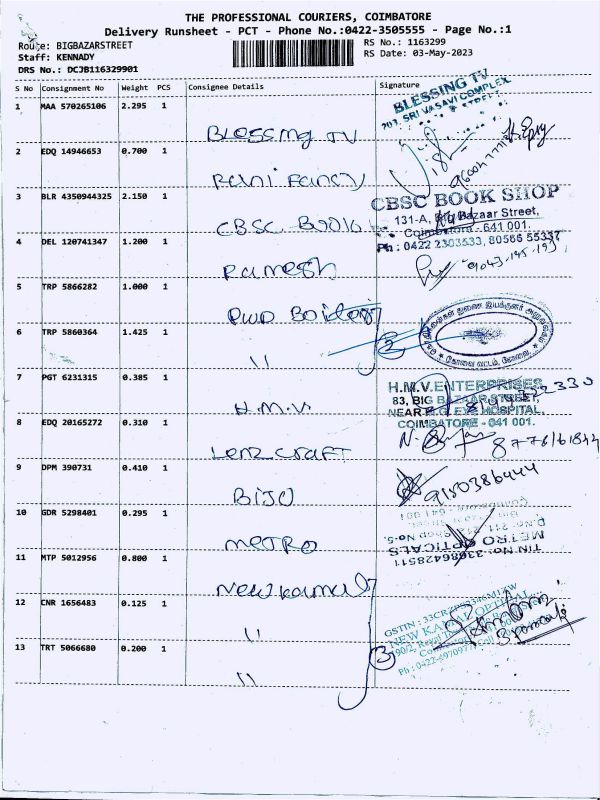 THE PROFESSIONAL COURIERS, COIMBATORE
Delivery Runsheet - PCT - Phone No.:0422-3505555 - Page No.:1
Route: BIGBAZARSTREET
RS No.: 1163299
Staff: KENNADY
RS Date: 03-May-2023
DRS No.: DCJB116329901
S No Consignment No Weight PCS Consignee Details Signature
1 MAA 570265106 2.295 1
Blessing TV
BLESSING TV
703, SRI VASAVI COMPLEX
2 EDQ 14946653 0.700 1
Rani Fancy
3 BLR 4350944325 2.150 1
CBSC Book
CBSC BOOK SHOP
131-A, Big Bazaar Street,
Coimbatore - 641 001.
Ph : 0422 2303533, 80566 55337
4 DEL 120741347 1.200 1
Ramesh
5 TRP 5866282 1.000 1
PWD
6 TRP 5860364 1.425 1
"
2
7 PGT 6231315 0.385 1
H.M.V.
H.M.V.ENTERPRISES
83, BIG BAZAAR STREET,
NEAR EYE HOSPITAL,
COIMBATORE - 041 001.
8 EDQ 20165272 0.310 1
Lenz craft
9 DPM 390731 0.410 1
BIJO
9150386444
10 GDR 5298401 0.295 1
metro
METRO OPTICALS
TIN No: 33086428511
11 MTP 5012956 0.800 1
New Kamal
12 CNR 1656483 0.125 1
"
NEW KAMAL OPTICAL
3
13 TRT 5066680 0.200 1
"